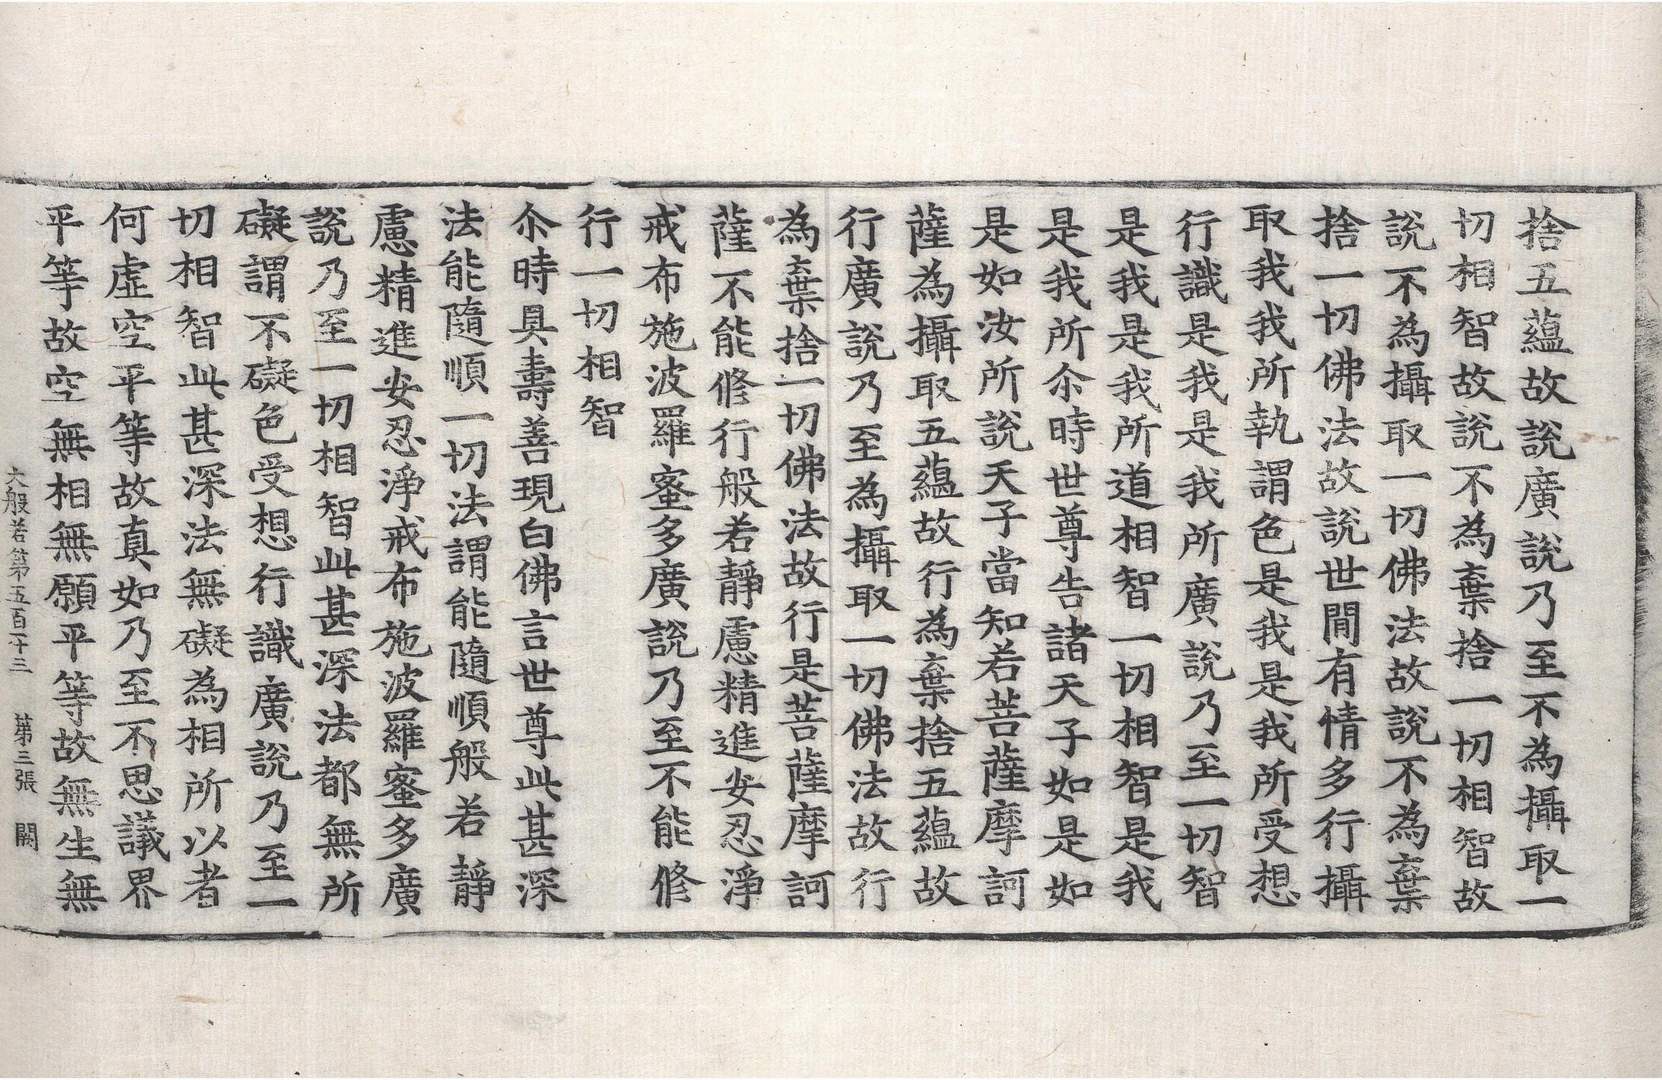 捨五蘊故說廣說乃至不為攝取一
切相智故說不為棄捨一切相智故
說不為攝取一切佛法故說不為棄
捨一切佛法故說世間有情多行攝
取我我所執謂色是我是我所受想
行識是我是我所廣說乃至一切智
是我是我所道相智一切相智是我
是我所尒時世尊告諸天子如是如
是如汝所說天子當知若菩薩摩訶
薩為攝取五蘊故行為棄捨五蘊故
行廣說乃至為攝取一切佛法故行
為棄捨一切佛法故行是菩薩摩訶
薩不能修行般若靜慮精進安忍淨
戒布施波羅蜜多廣說乃至不能修
行一切相智
尒時具壽善現白佛言世尊此甚深
法能隨順一切法謂能隨順般若靜
慮精進安忍淨戒布施波羅蜜多廣
說乃至一切相智此甚深法都無所
礙謂不礙色受想行識廣說乃至一
切相智此甚深法無礙為相所以者
何虛空平等故真如乃至不思議界
平等故空無相無願平等故無生無
大般若第五百十三 第三張 闕